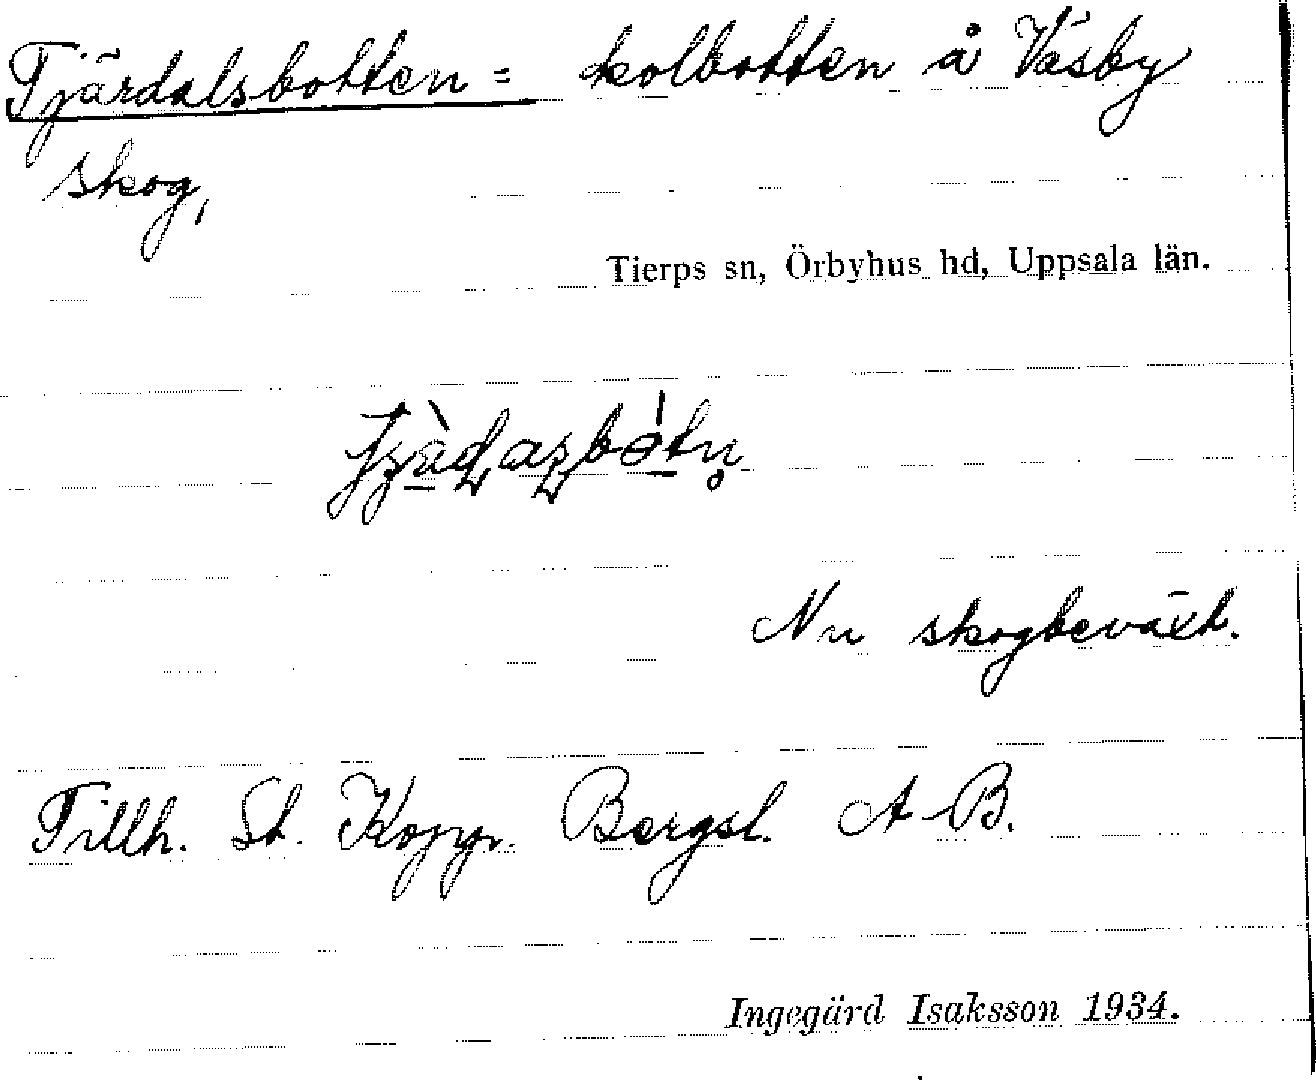 Tjärdalsbotten = kolbotten å Väsby
skog,
Tierps sn, Örbyhus hd, Uppsala län.
Nu skogbeväxt.
Tillh. St. Kopp. Bergsl. A-B.
Ingegärd Isaksson 1934.